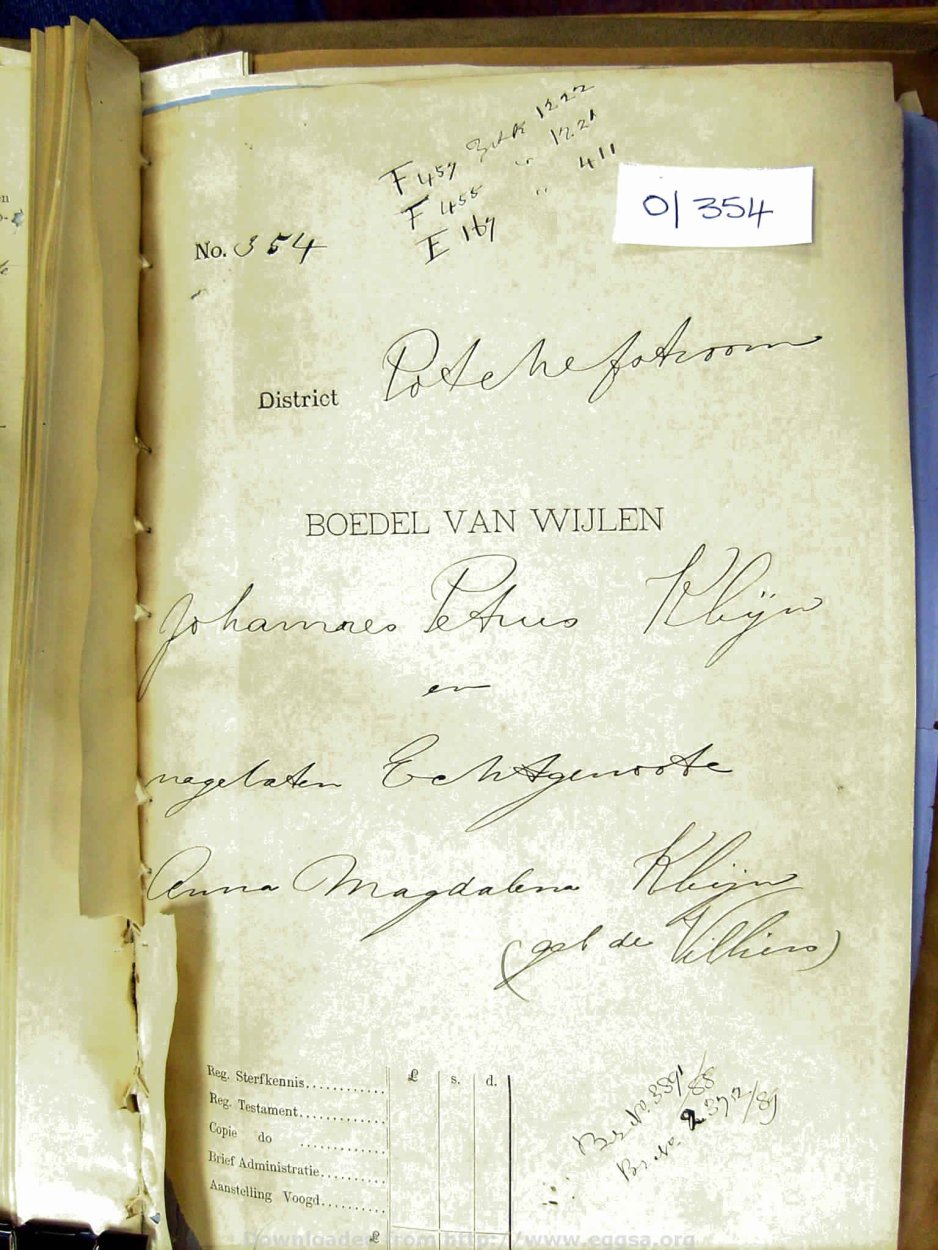 F 457 1222
F 455 " 1221
E 167 " 411
0/354
No. 354
District Potchefstroom
BOEDEL VAN WIJLEN
Johannes Petrus Klijn
en
nagelaten Echtgenoote
Anna Magdalena Klijn
(geb de Villiers)
Reg. Sterfkennis............ £ s. d.
Reg. Testament............
Copie do ............
Brief Administratie............
Aanstelling Voogd............
£
Bs No. 3891/88
Bs No. 2372/89
Downloaded from http://www.eggsa.org